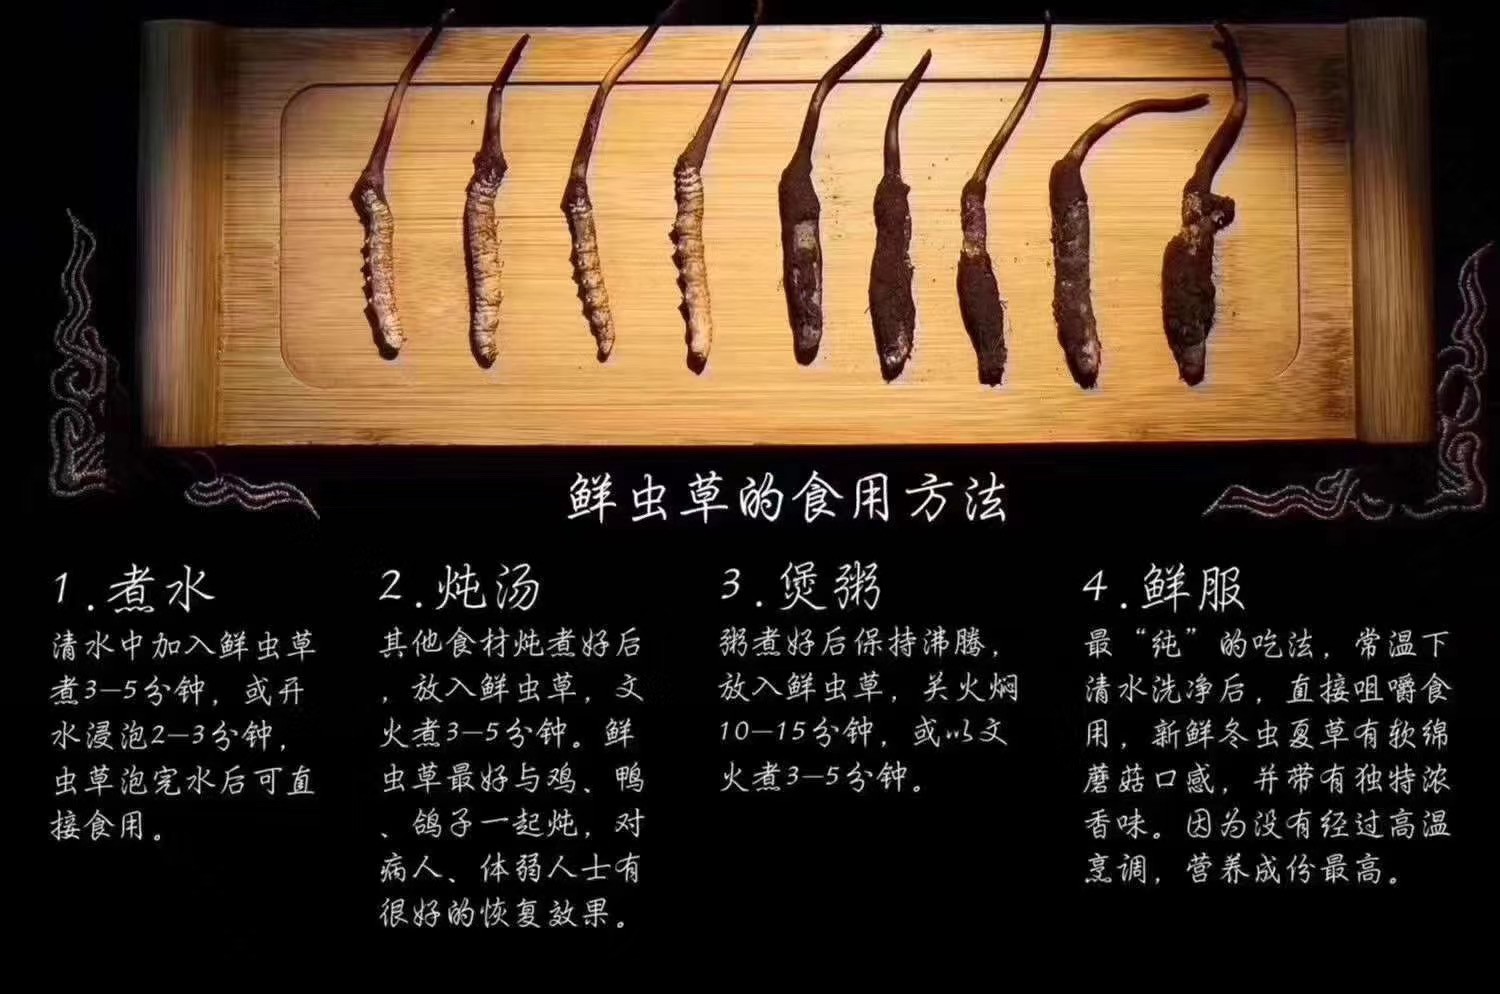 鲜虫草的食用方法
1.煮水
清水中加入鲜虫草
煮3-5分钟，或开
水浸泡2-3分钟，
虫草泡完水后可直
接食用。
2.炖汤
其他食材炖煮好后
，放入鲜虫草，文
火煮3-5分钟。鲜
虫草最好与鸡、鸭
、鸽子一起炖，对
病人、体弱人士有
很好的恢复效果。
3.煲粥
粥煮好后保持沸腾，
放入鲜虫草，关火焖
10-15分钟，或以文
火煮3-5分钟。
4.鲜服
最“纯”的吃法，常温下
清水洗净后，直接咀嚼食
用，新鲜冬虫夏草有软绵
蘑菇口感，并带有独特浓
香味。因为没有经过高温
烹调，营养成份最高。